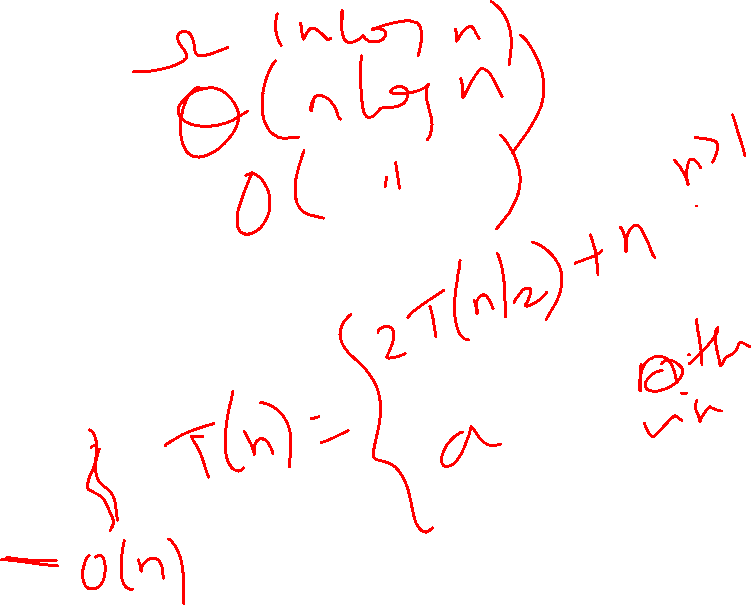 Ω (n log n)
Θ (n log n)
O ( " )
n > 1
2T(n/2) + n
T(n) = {
a
oth
O(n)